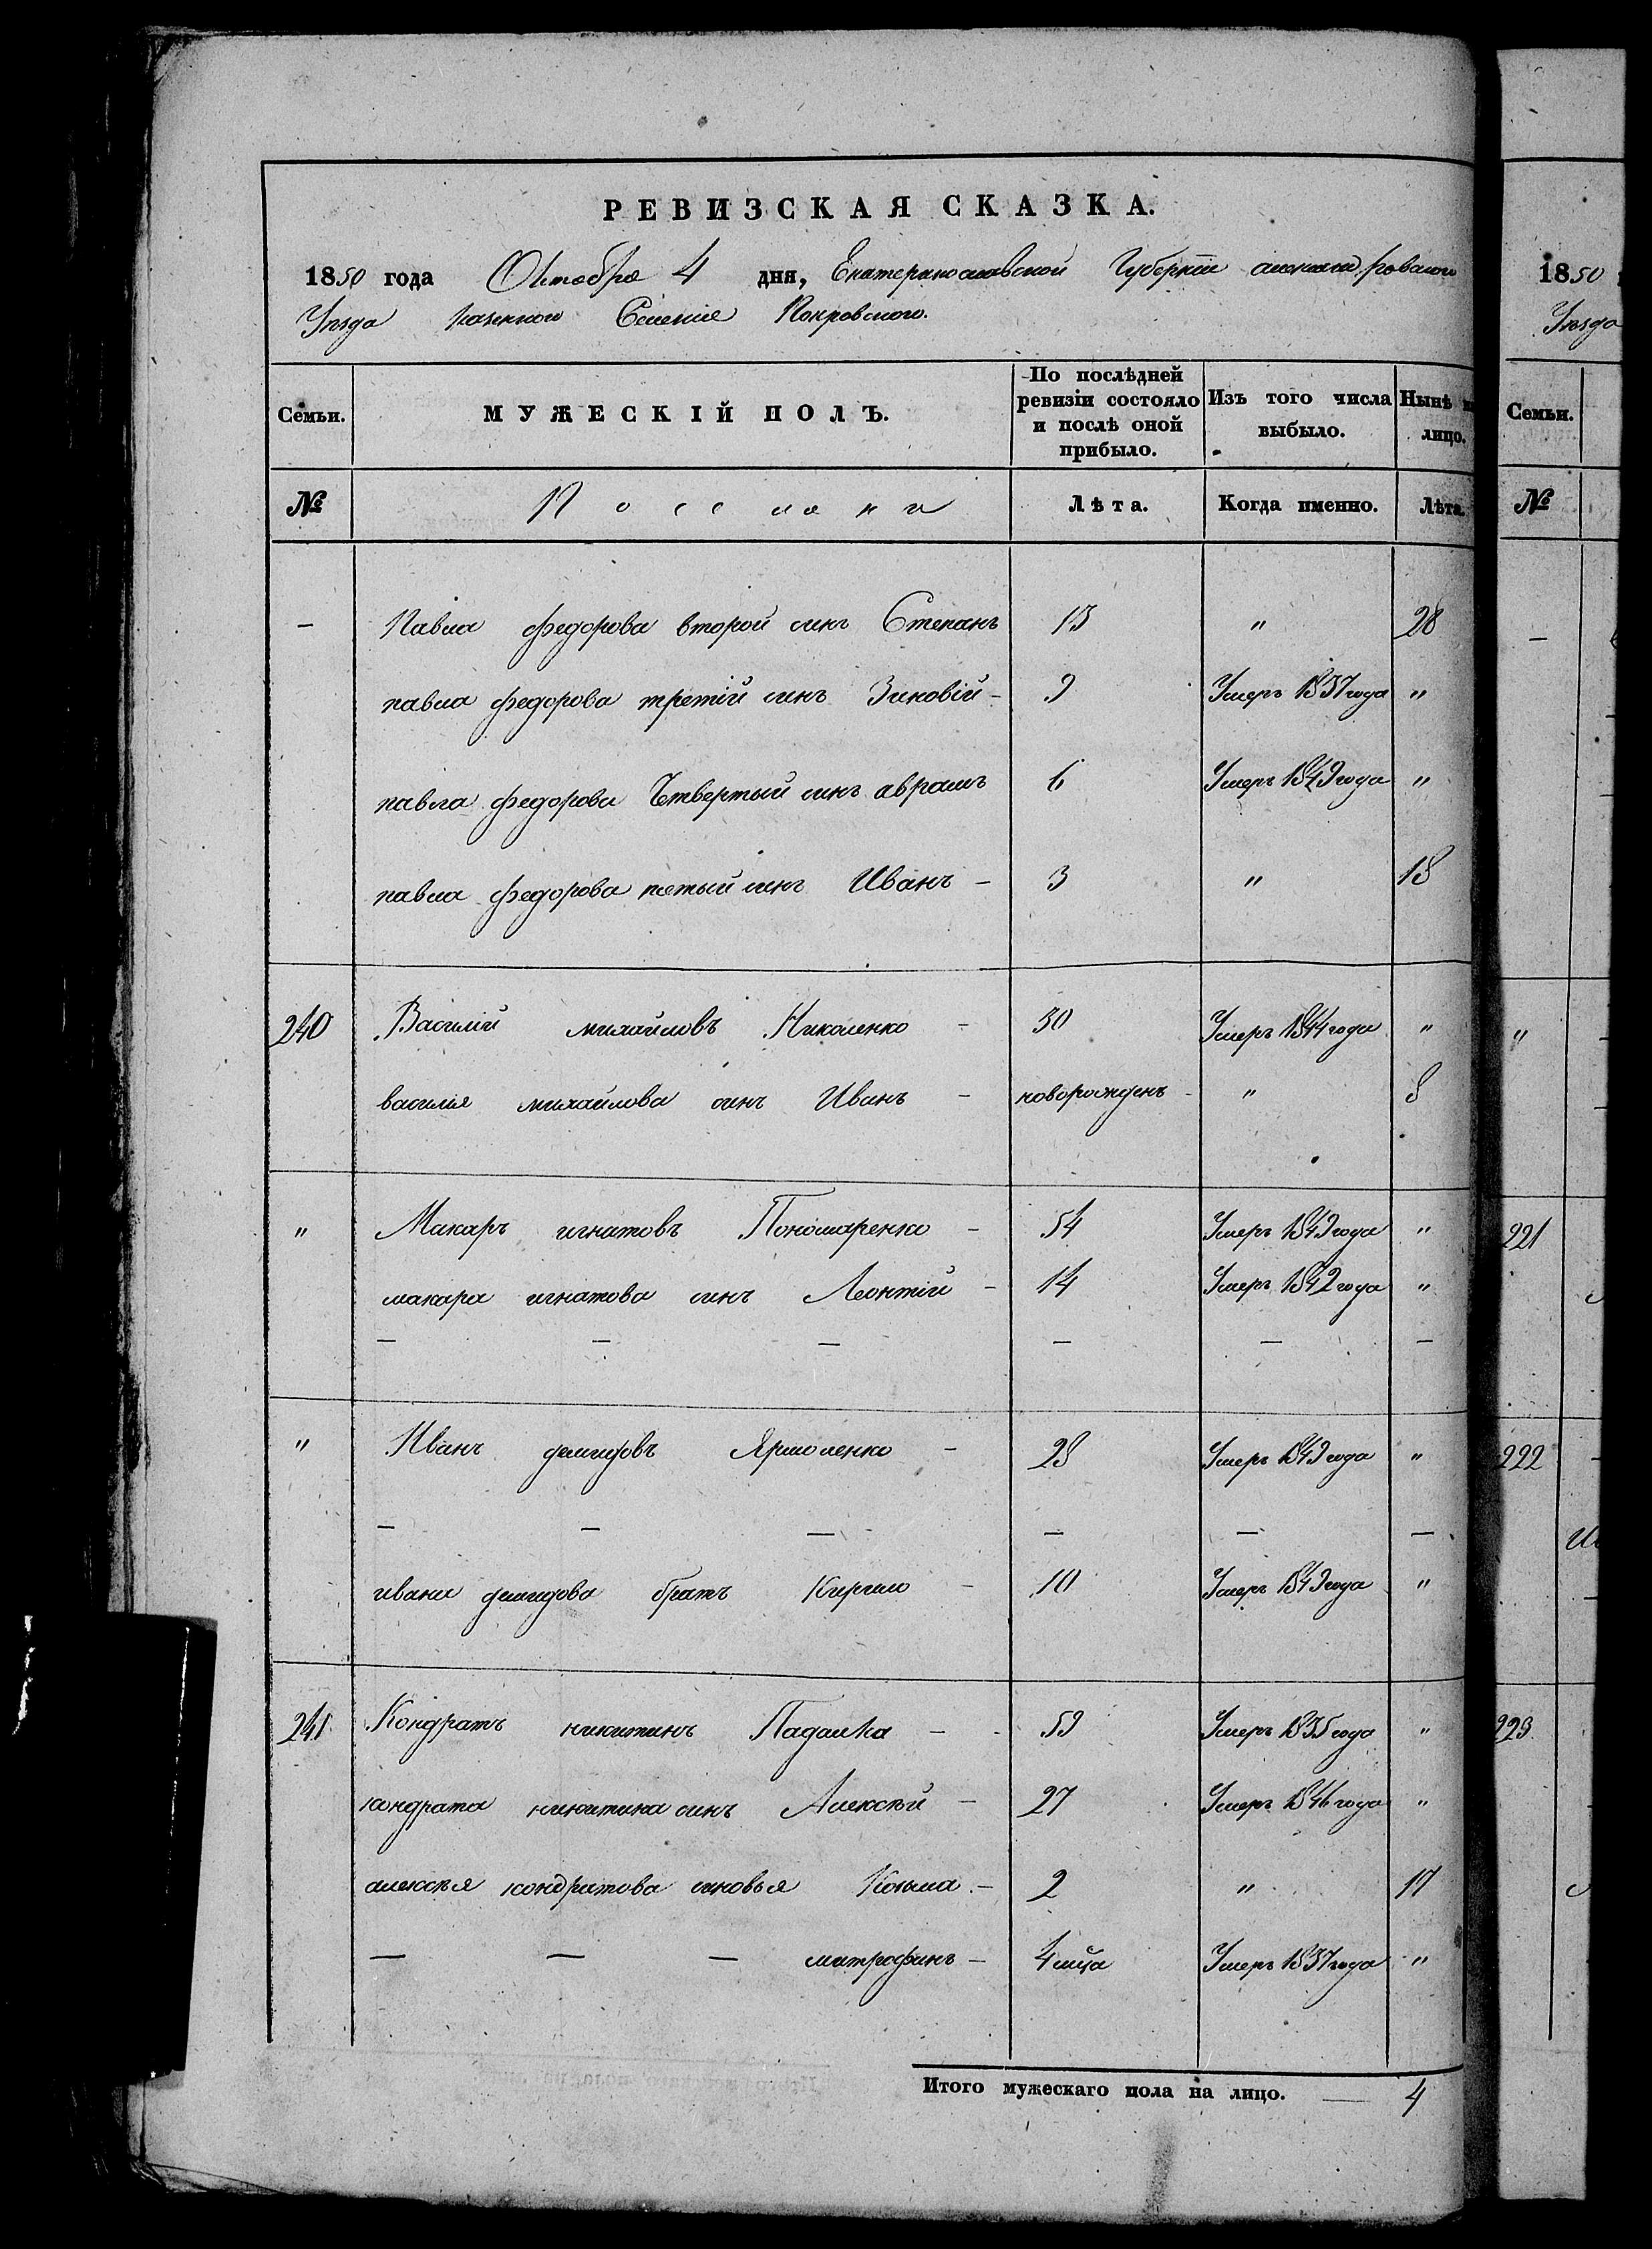 РЕВИЗСКАЯ СКАЗКА.
1850 года Октября 4 дня, Екатеринославской Губернiи александровскаго
Уѣзда казенного Селенiя Покровского.
Семьи. МУЖЕСКІЙ ПОЛЪ. По послѣдней ревизіи состояло и послѣ оной прибыло. Изъ того числа выбыло. Нынѣ на лицо.
№ Лѣта. Когда именно. Лѣта.
— Павла федорова второй синъ Степанъ 13 " 28
павла федорова третiй синъ Зиновiй — 9 Умеръ 1837 года "
павла федорова Четвертый синъ аврамъ 6 Умеръ 1849 года "
павла федорова пятый синъ Иванъ — 3 " 18
240 Василiй михайловъ Николенко — 50 Умеръ 1844 года "
василия михайлова синъ Иванъ — новорожденъ — " 8
" Макаръ игнатовъ Пономаренко — 54 Умеръ 1849 года "
макара игнатова синъ Леонтiй — 14 Умеръ 1842 года "
— — — — — —
" Иванъ демидовъ Ярмоленко — 28 Умеръ 1849 года "
— — — — — —
ивана демидова братъ Кирило — 10 Умеръ 1849 года "
241 Кондратъ никитинъ Падалка — 59 Умеръ 1835 года "
кондрата никитина синъ Алексѣй — 27 Умеръ 1846 года "
алексѣя кондратова синовья Козьма — 2 " 17
— — — митрофанъ — 4 мца Умеръ 1837 года "
Итого мужескаго пола на лицо. — 4
1850
Уѣзда
Семьи.
№
—
"
221
222
223